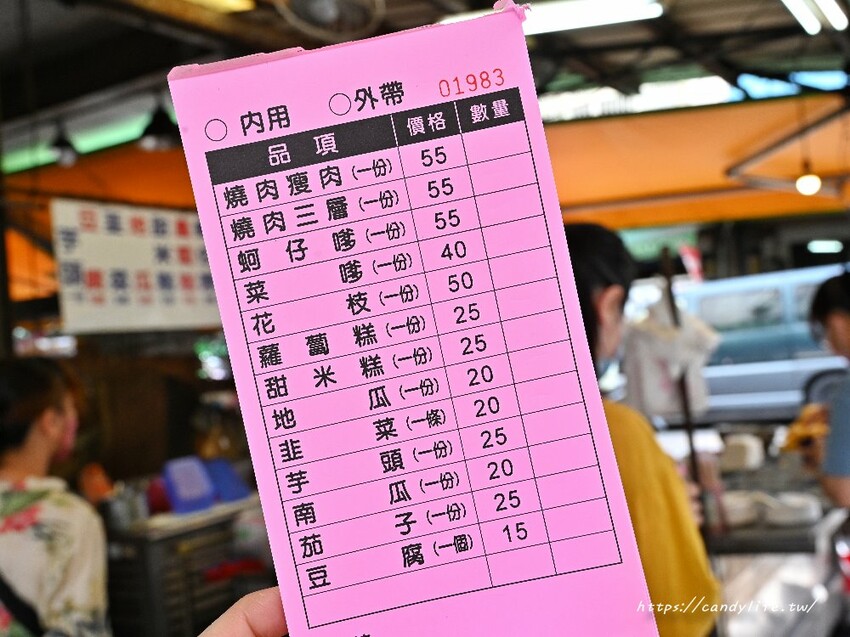 ○ 內用 ○外帶 01983
品項 價格 數量
燒肉瘦肉(一份) 55
燒肉三層(一份) 55
蚵仔嗲(一份) 55
菜嗲(一份) 40
花枝(一份) 50
蘿蔔糕(一份) 25
甜米糕(一份) 25
地瓜(一份) 20
韭菜(一條) 20
芋頭(一份) 25
南瓜(一份) 20
茄子(一份) 25
豆腐(一個) 15
https://candylife.tw/